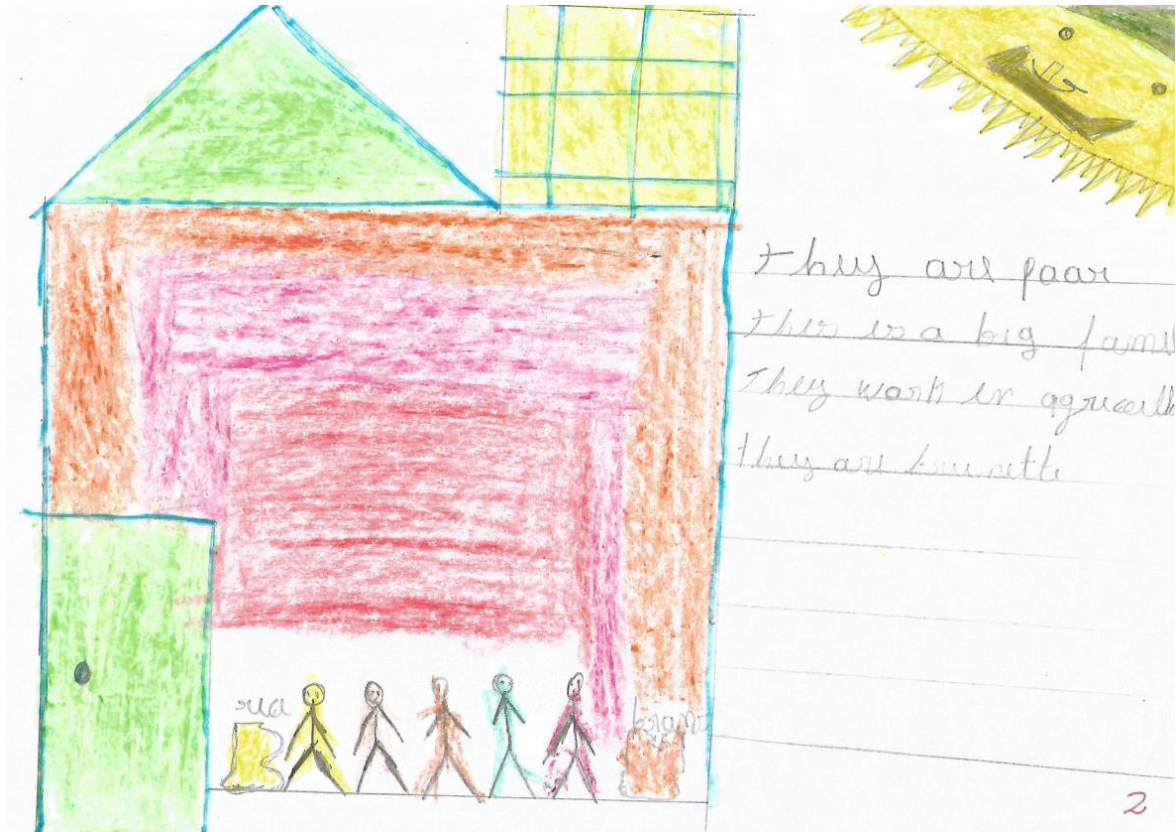 they are paar
this is a big famil
They work in agricult
they are brunette
2